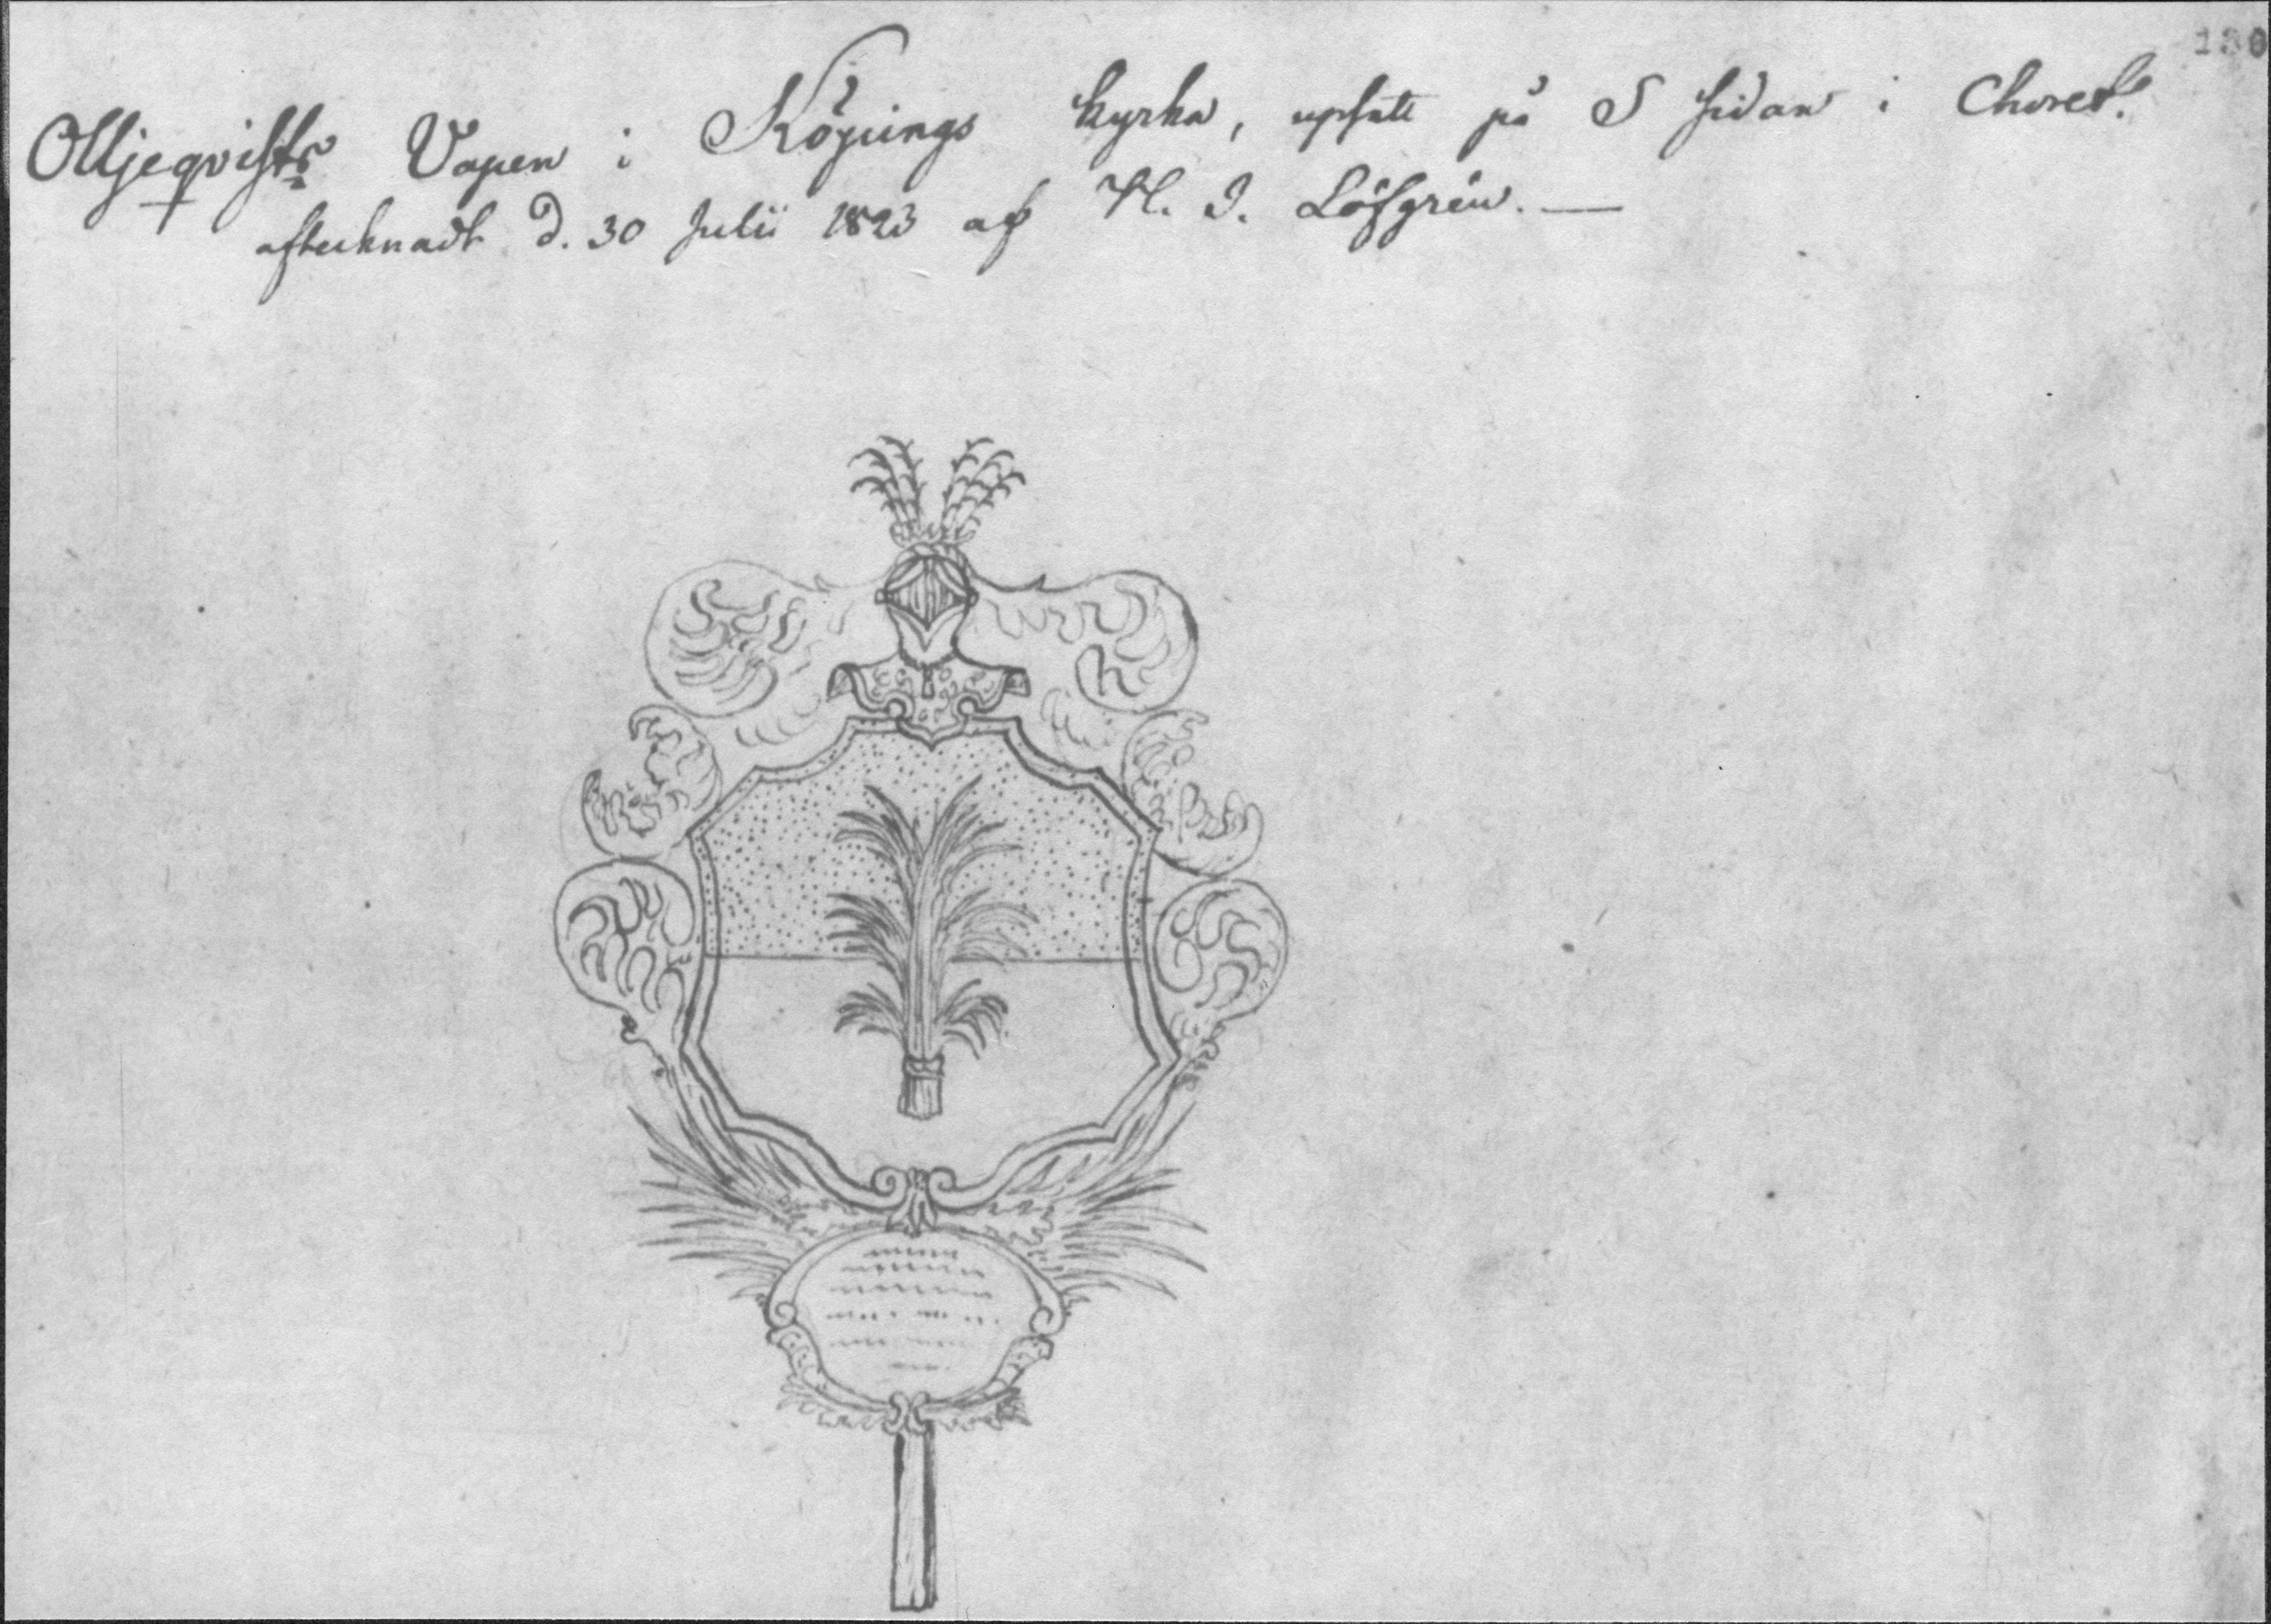 130
Olljeqvists Vapen i Köpings kyrka, upsatt på S sidan i Choret.
afteknadt d. 30 Julii 1823 af N. I. Löfgrén. —